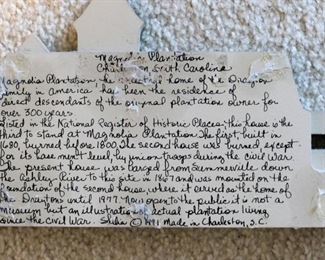 Magnolia Plantation
Charleston, South Carolina
Magnolia Plantation, the ancestral home of the Drayton
family in America has been the residence of
direct descendants of the original plantation owner for
over 300 years.
Listed in the National Register of Historic Places, this house is the
third to stand at Magnolia Plantation. The first, built in
1680, burned before 1800. The second house was burned, except
for its basement level, by union troops during the Civil War.
The present house was barged from Summerville down
the Ashley River to this site in 1867 and was mounted on the
foundation of the second house, where it served as the home of
the Draytons until 1977. Now open to the public it is not a
museum but an illustration of actual plantation living
since the Civil War. © 1991 Made in Charleston, S.C.